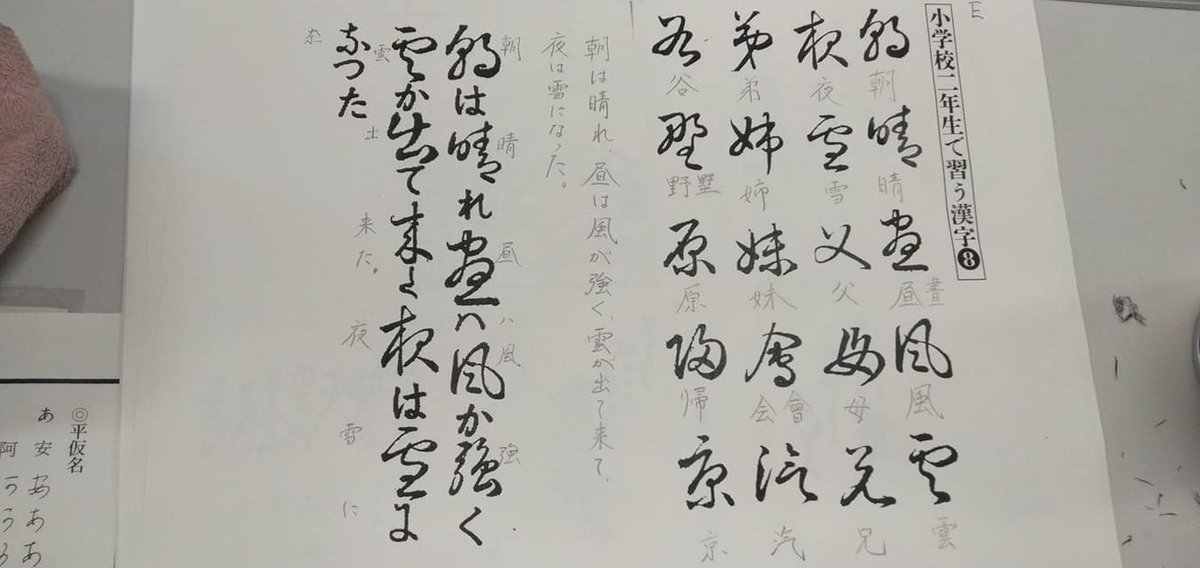 E
小学校二年生で習う漢字❽
朝晴昼風雲
朝 晴 昼 晝 風 雲
夜雪父母兄
夜 雪 父 母 兄
弟姉妹會汽
弟 姉 妹 会 會 汽
谷野原帰京
谷 野 墅 原 帰 京
朝は晴れ、昼は風が強く、雲が出て来て、
夜は雪になった。
朝 晴 昼 ハ 風 強
朝は晴れ昼ハ風か強く
雲 出 来た。 夜 雪 に
雲か出て来た夜は雪に
奈
なつた
◎平仮名
あ 安 あ あ あ
阿